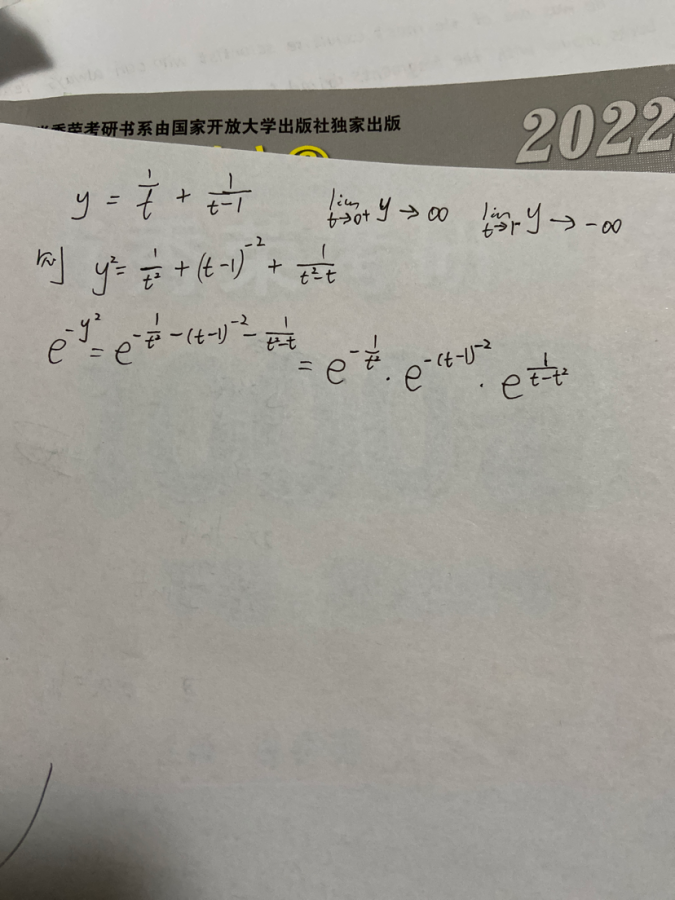 考研书系由国家开放大学出版社独家出版
2022
y = 1/t + 1/(t-1)    lim t→0+ y → ∞    lim t→1- y → -∞
则 y² = 1/t² + (t-1)^-2 + 1/(t²-t)
e^(-y²) = e^(-1/t² - (t-1)^-2 - 1/(t²-t)) = e^(-1/t²) · e^(-(t-1)^-2) · e^(1/(t-t²))